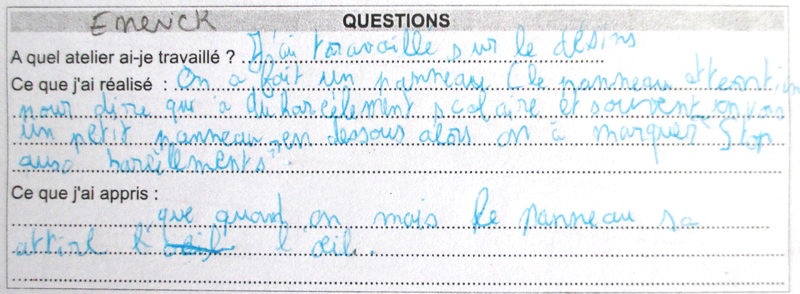 Emerick QUESTIONS
A quel atelier ai-je travaillé ? J'ai toravaille sur le désins
Ce que j'ai réalisé : On a fait un panneau (le panneau attention
pour dire que a du harcèlement scolaire et souvent on vois
un petit panneau en dessous alors on à marquer "Stop
aux harcèlements".
Ce que j'ai appris :
que quand on mais le panneau sa
attire l' l'œil.